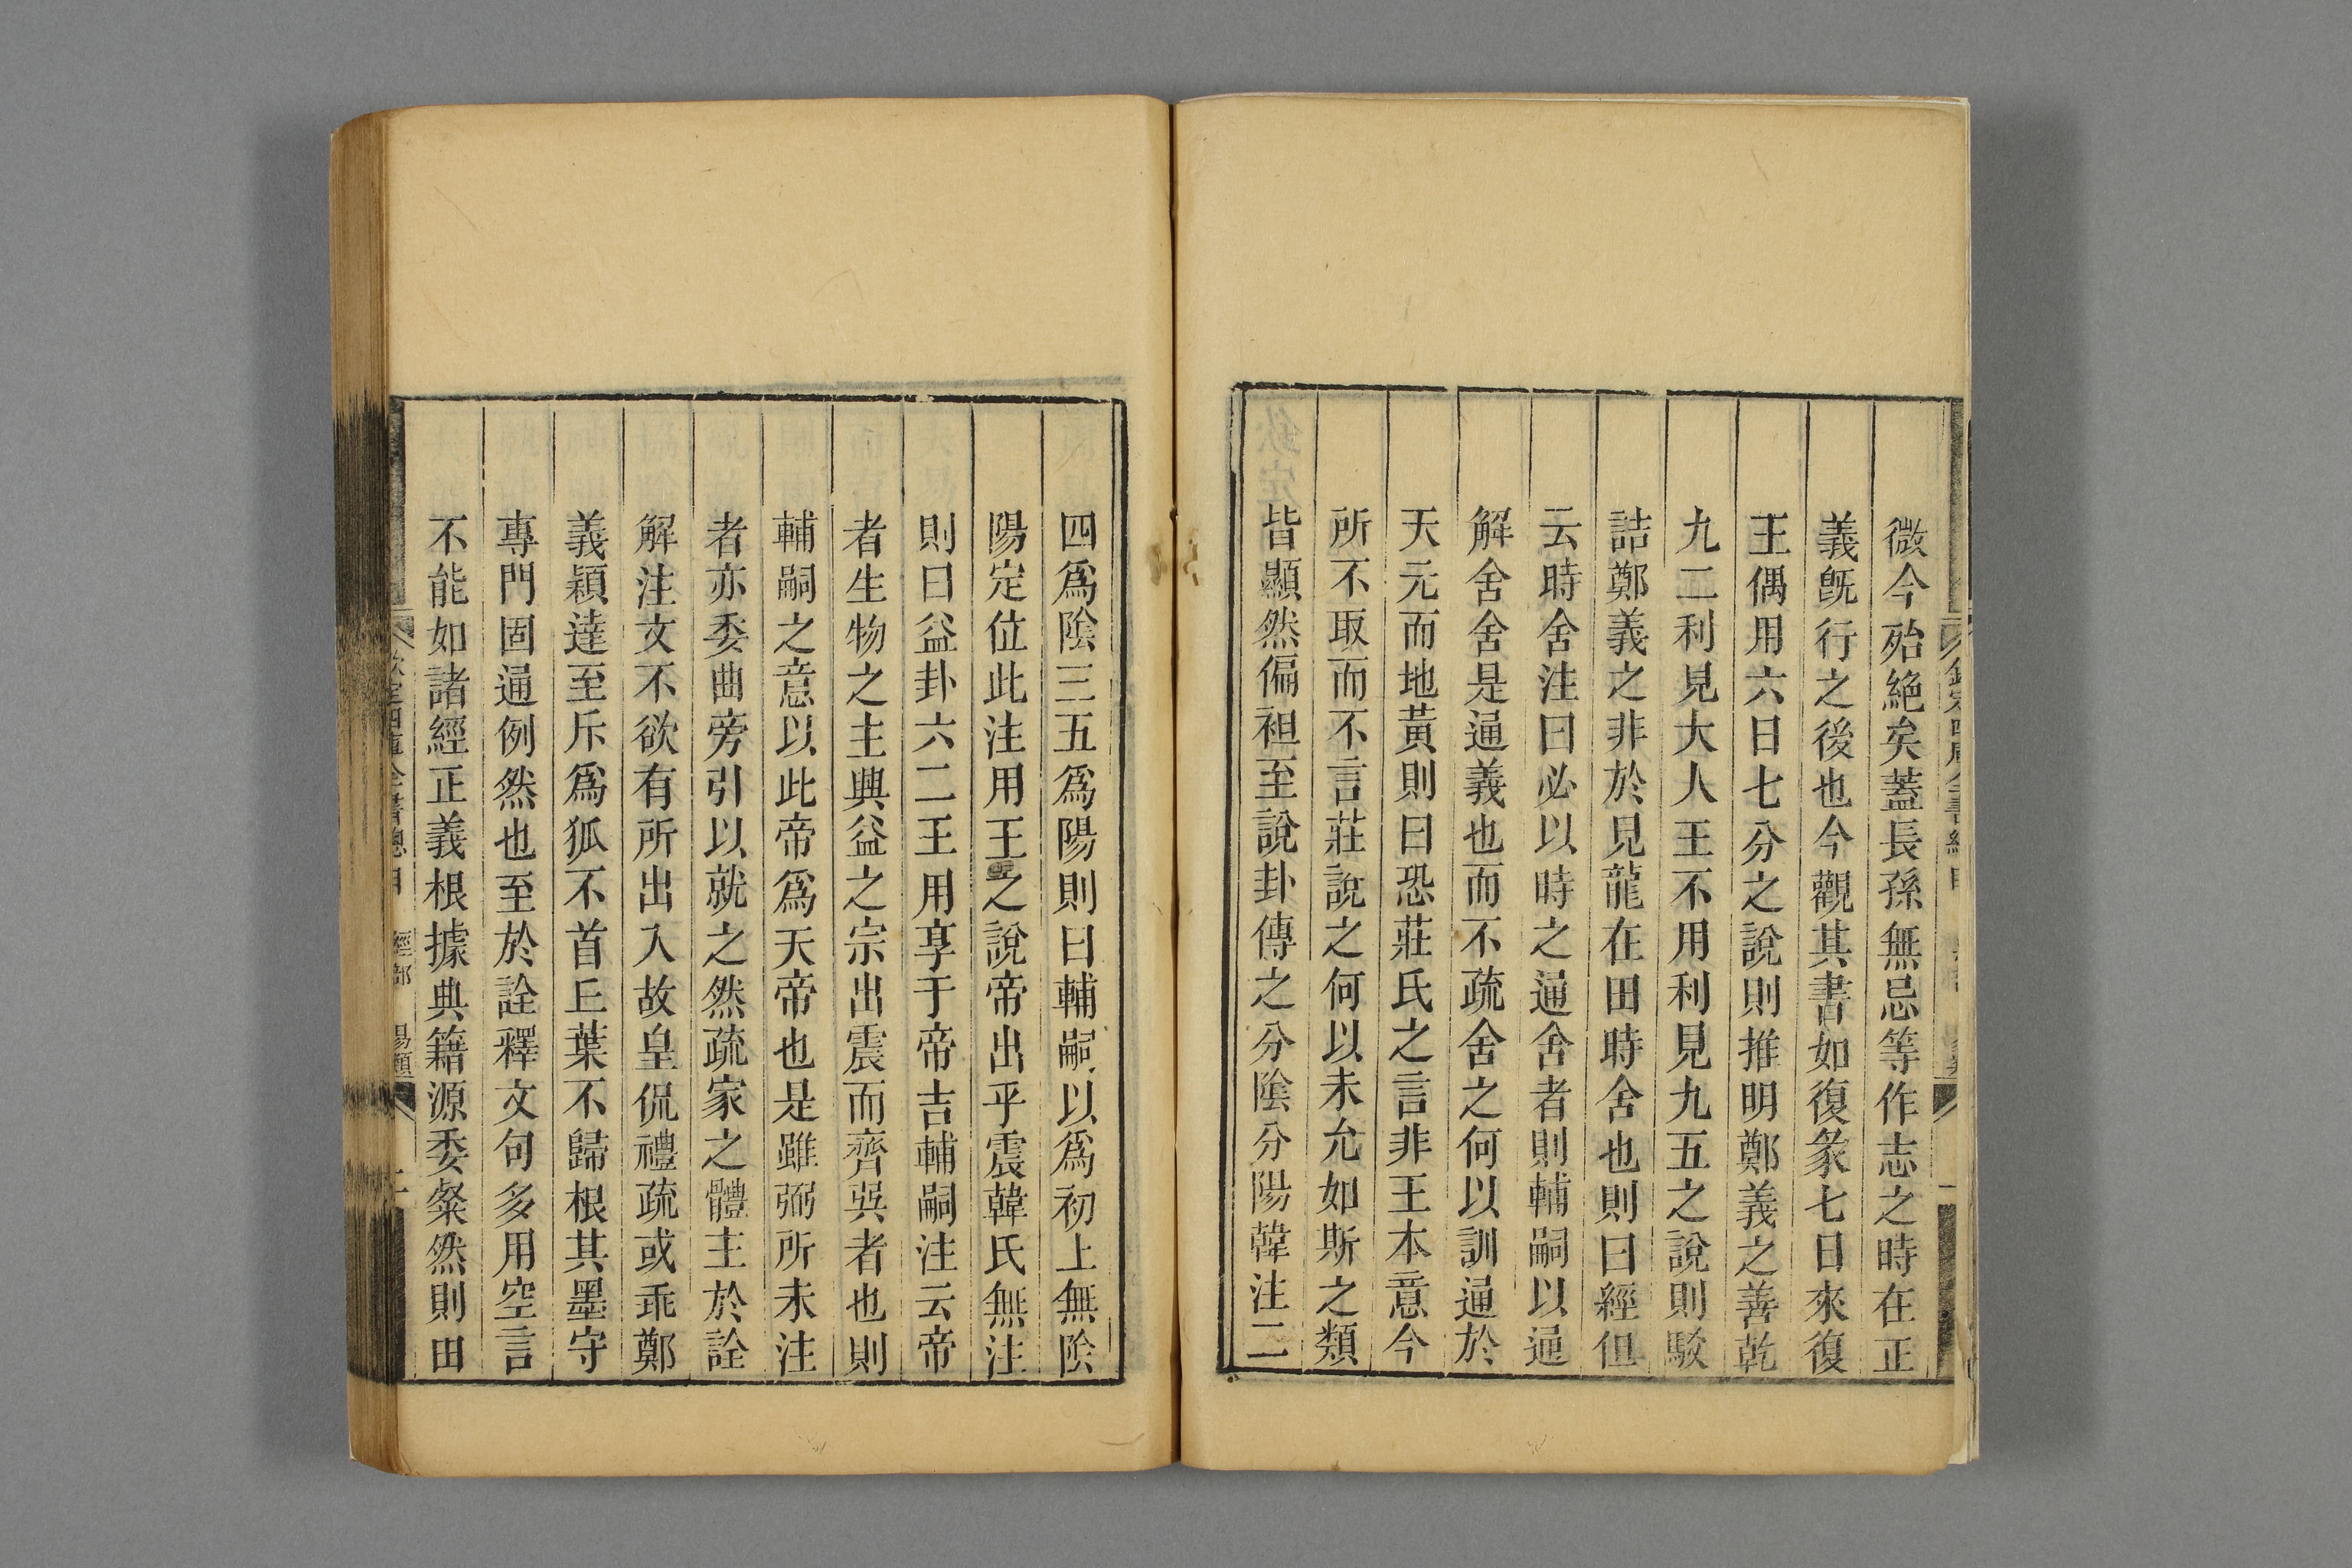 微今殆絶矣蓋長孫無忌等作志之時在正
義旣行之後也今觀其書如復彖七日來復
王偶用六日七分之說則推明鄭義之善乾
九二利見大人王不用利見九五之說則駁
詰鄭義之非於見龍在田時舍也則曰經但
云時舍注曰必以時之通舍者則輔嗣以通
解舍舍是通義也而不疏舍之何以訓通於
天元而地黃則曰恐莊氏之言非王本意今
所不取而不言莊說之何以未允如斯之類
皆顯然偏袒至說卦傳之分陰分陽韓注二
四爲陰三五爲陽則曰輔嗣以爲初上無陰
陽定位此注用王之說帝出乎震韓氏無注
則曰益卦六二王用享于帝吉輔嗣注云帝
者生物之主興益之宗出震而齊巽者也則
輔嗣之意以此帝爲天帝也是雖弼所未注
者亦委曲旁引以就之然疏家之體主於詮
解注文不欲有所出入故皇侃禮疏或乖鄭
義穎達至斥爲狐不首丘葉不歸根其墨守
專門固通例然也至於詮釋文句多用空言
不能如諸經正義根據典籍源委粲然則由
欽定四庫全書總目 經部 易類